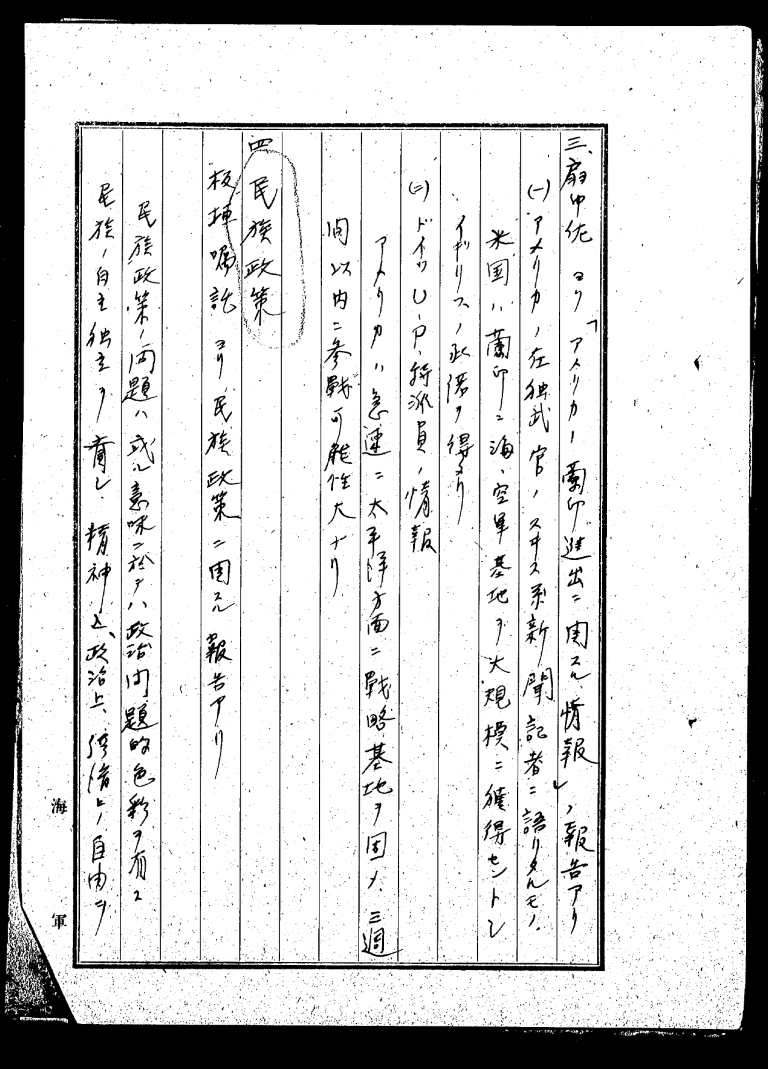 三、扇中佐 ヨリ「アメリカノ蘭印進出ニ関スル情報」ノ報告アリ
(一) アメリカノ在独武官ノスヰス系新聞記者ニ語リタルモノ、
米国ハ蘭印ニ海、空軍基地ヲ大規模ニ獲得セントシ
イギリスノ承諾ヲ得タリ
(二) ドイツU.P.特派員ノ情報
アメリカハ急速ニ太平洋方面ニ戦略基地ヲ固メ、三週
間以内ニ参戦可能性大ナリ
四 民族政策
板垣嘱託 ヨリ民族政策ニ関スル報告アリ
民族政策ノ問題ハ或ル意味ニ於テハ政治問題的色彩ヲ有シ
民族ノ自主独立ヲ齎シ、精神上、政治上、経済上ノ自由ヲ
海軍